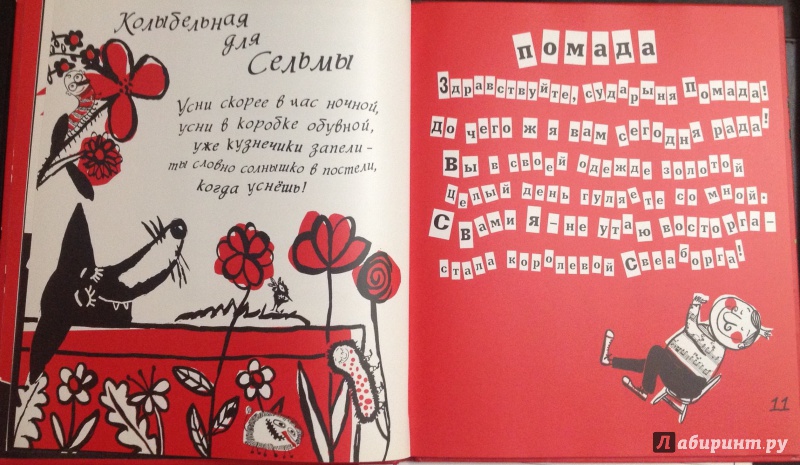 Колыбельная
для
Сельмы
Усни скорее в час ночной,
усни в коробке обувной,
уже кузнечики запели –
ты словно солнышко в постели,
когда уснёшь!
помада
Здравствуйте, сударыня Помада!
До чего ж я вам сегодня рада!
Вы в своей одежде золотой
целый день гуляете со мной.
С вами я – не утаю восторга –
стала королевой Свеаборга!
11
Лабиринт.ру